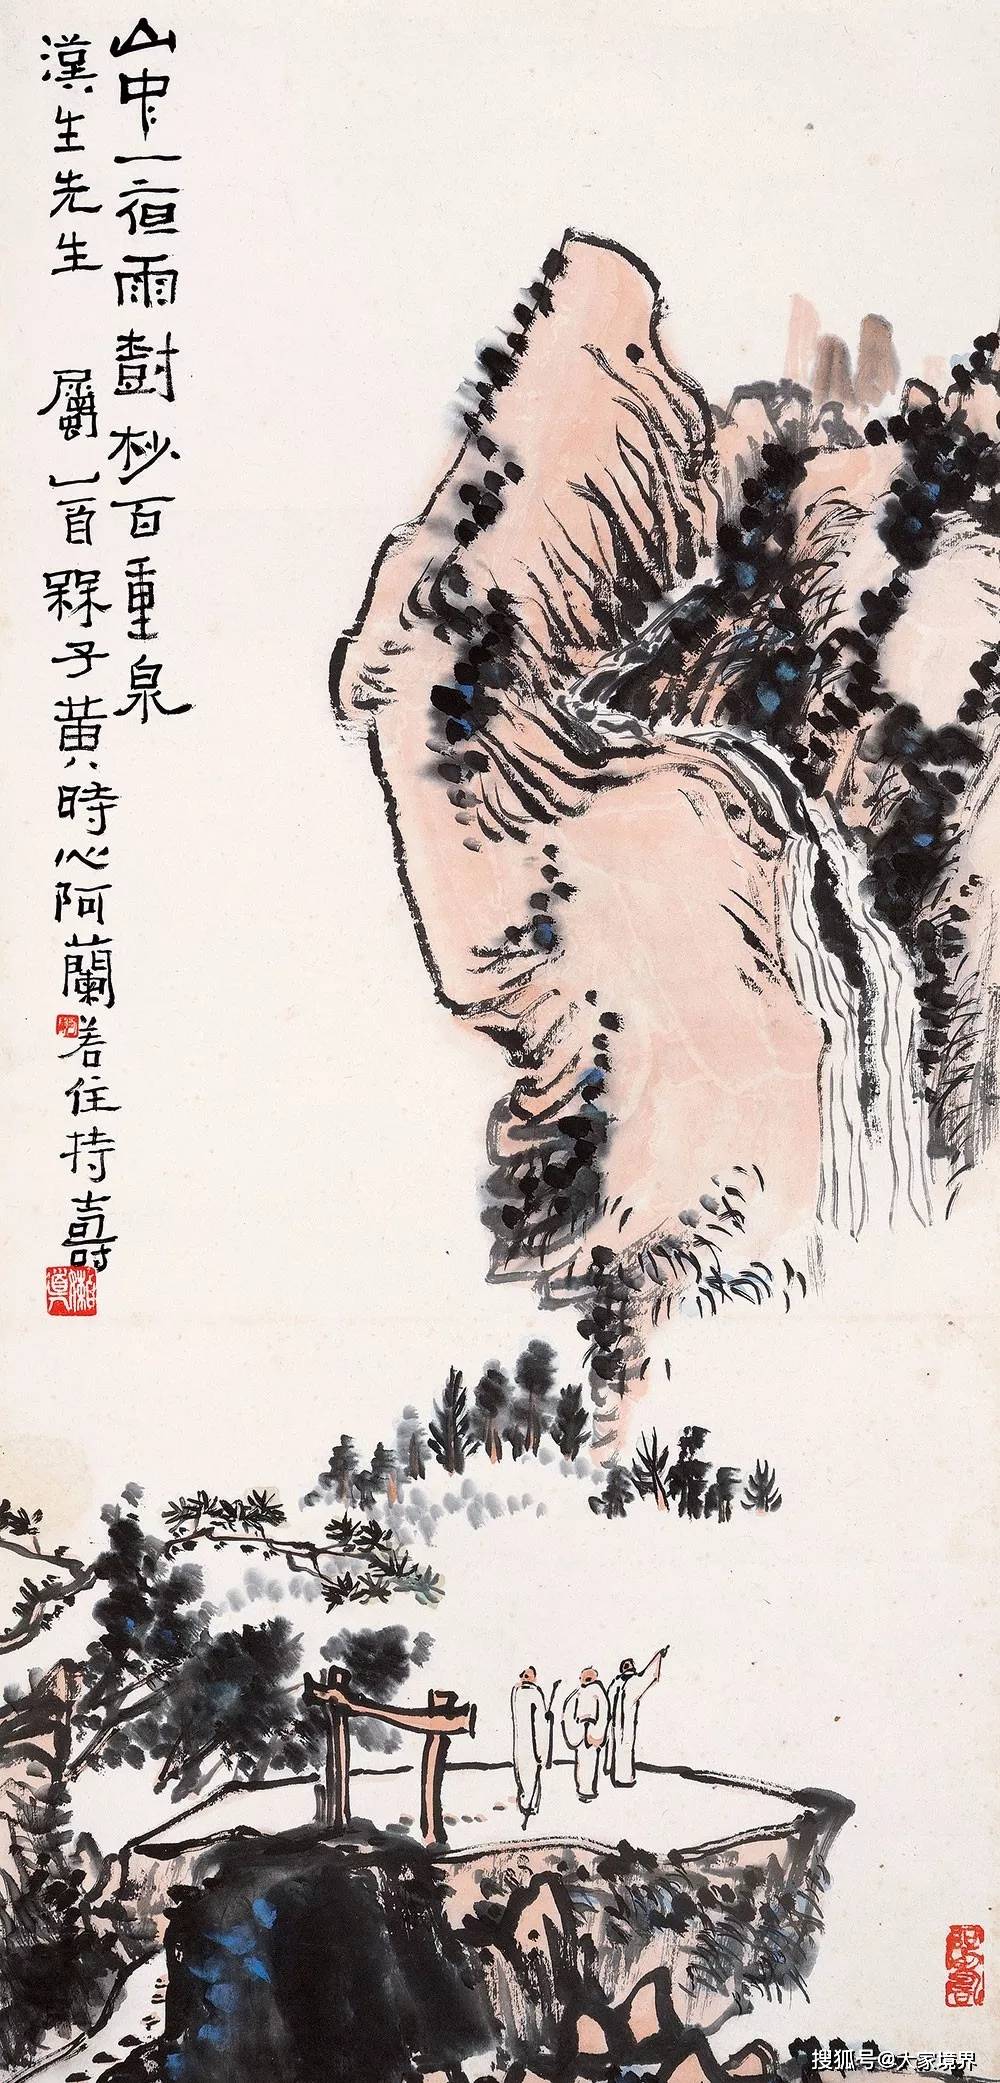 山中一夜雨樹杪百重泉
漢生先生 屬乙酉槑子黃時心阿蘭若住持壽
搜狐号@大家境界